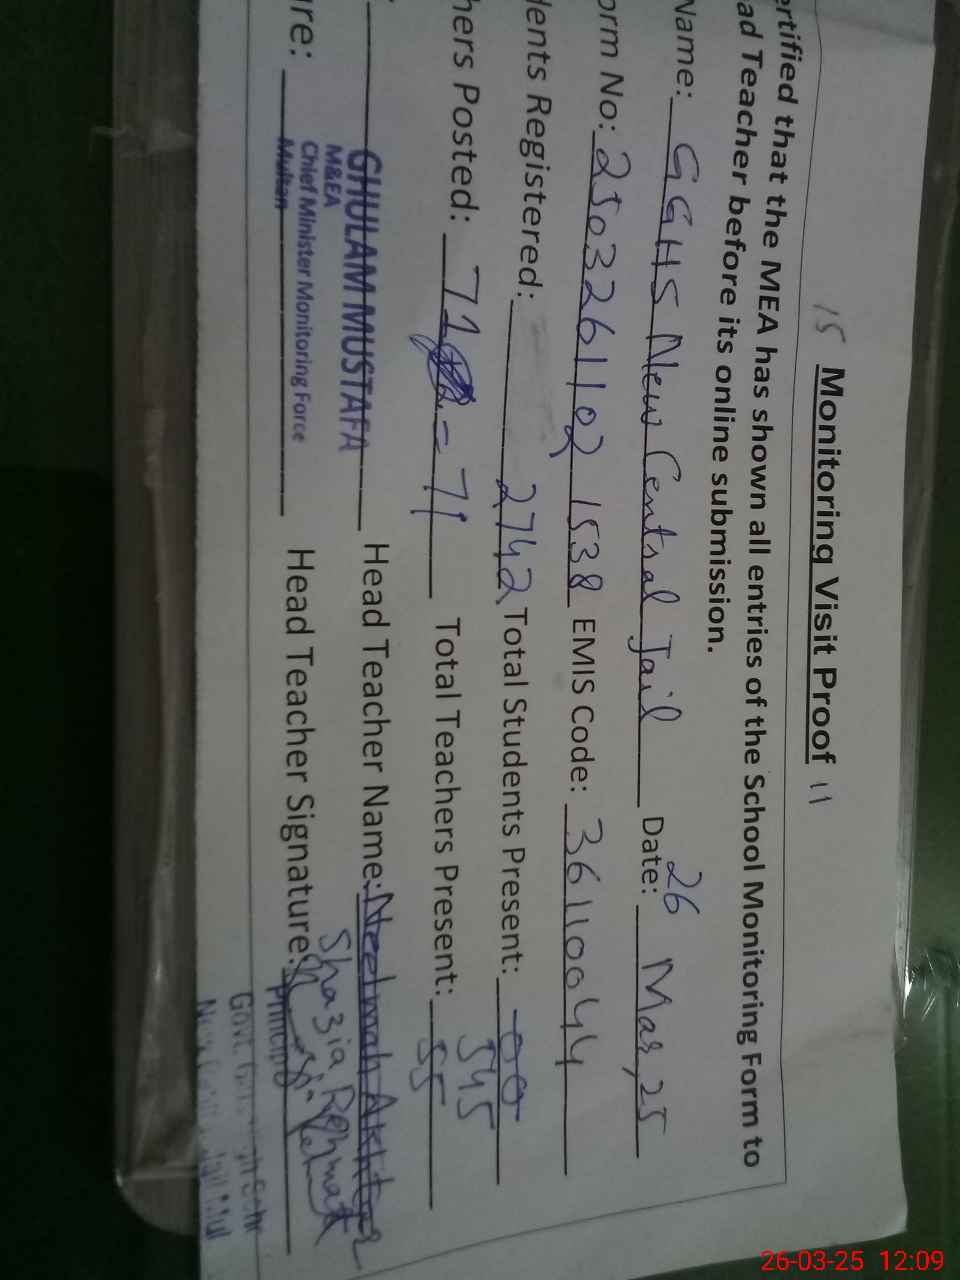 15 Monitoring Visit Proof 11
ertified that the MEA has shown all entries of the School Monitoring Form to
ad Teacher before its online submission.
Name: GGHS New Central Jail Date: 26 Mar, 25
orm No: 25032611021538 EMIS Code: 36110044
dents Registered: 2742 Total Students Present: 00 545
hers Posted: 71 = 71 Total Teachers Present: 55
GHULAM MUSTAFA Head Teacher Name: Neelmah Akhtar
M&EA
Shazia Rehmat
Chief Minister Monitoring Force
re: Multan Head Teacher Signature:
Principal
Govt.
26-03-25 12:09